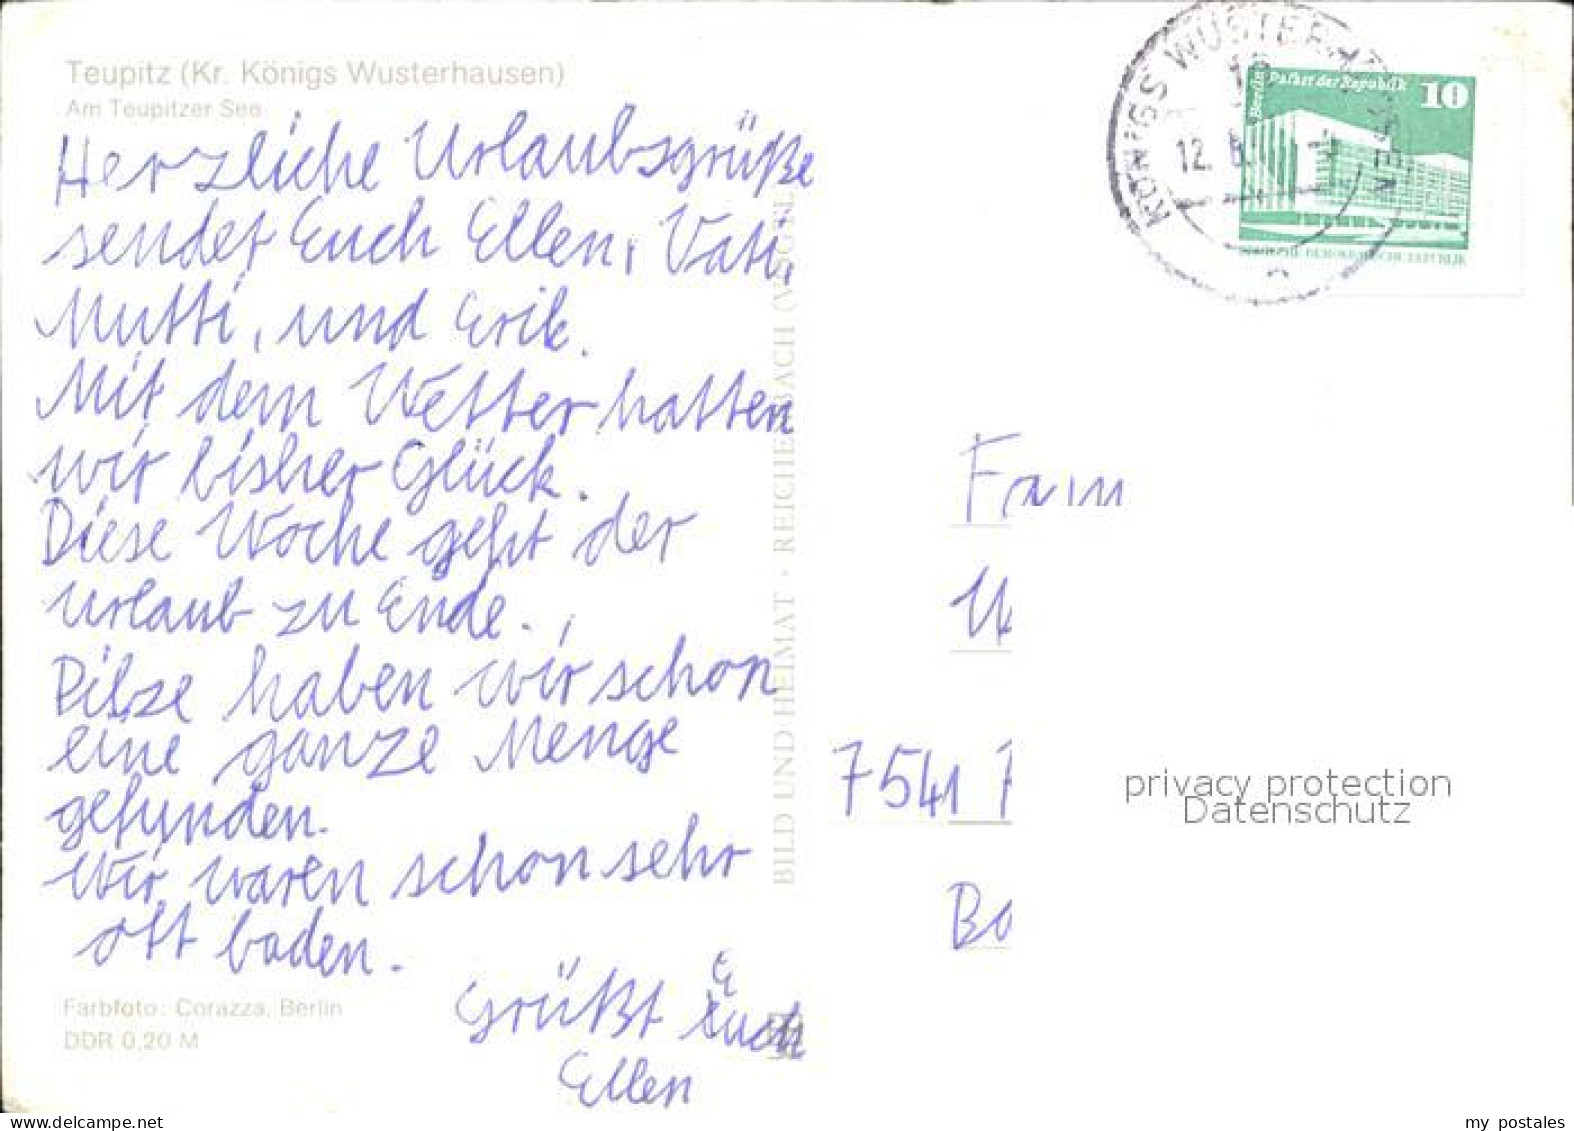 Teupitz (Kr. Königs Wusterhausen)
Am Teupitzer See
Herzliche Urlaubsgrüße
sendet Euch Ellen, Vati,
Mutti, und Erik.
Mit dem Wetter hatten
wir bisher Glück.
Diese Woche geht der
Urlaub zu Ende.
Pilze haben wir schon
eine ganze Menge
gefunden.
Wir waren schon sehr
oft baden.
Grüßt Euch
Ellen
Farbfoto: Corazza, Berlin
DDR 0,20 M
BILD UND HEIMAT · REICHENBACH (VOGTL
KÖNIGS WUSTERHAUSEN
12.
Berlin Palast der Republik 10
DEUTSCHE DEMOKRATISCHE REPUBLIK
Fam
7541
privacy protection
Datenschutz
my postales